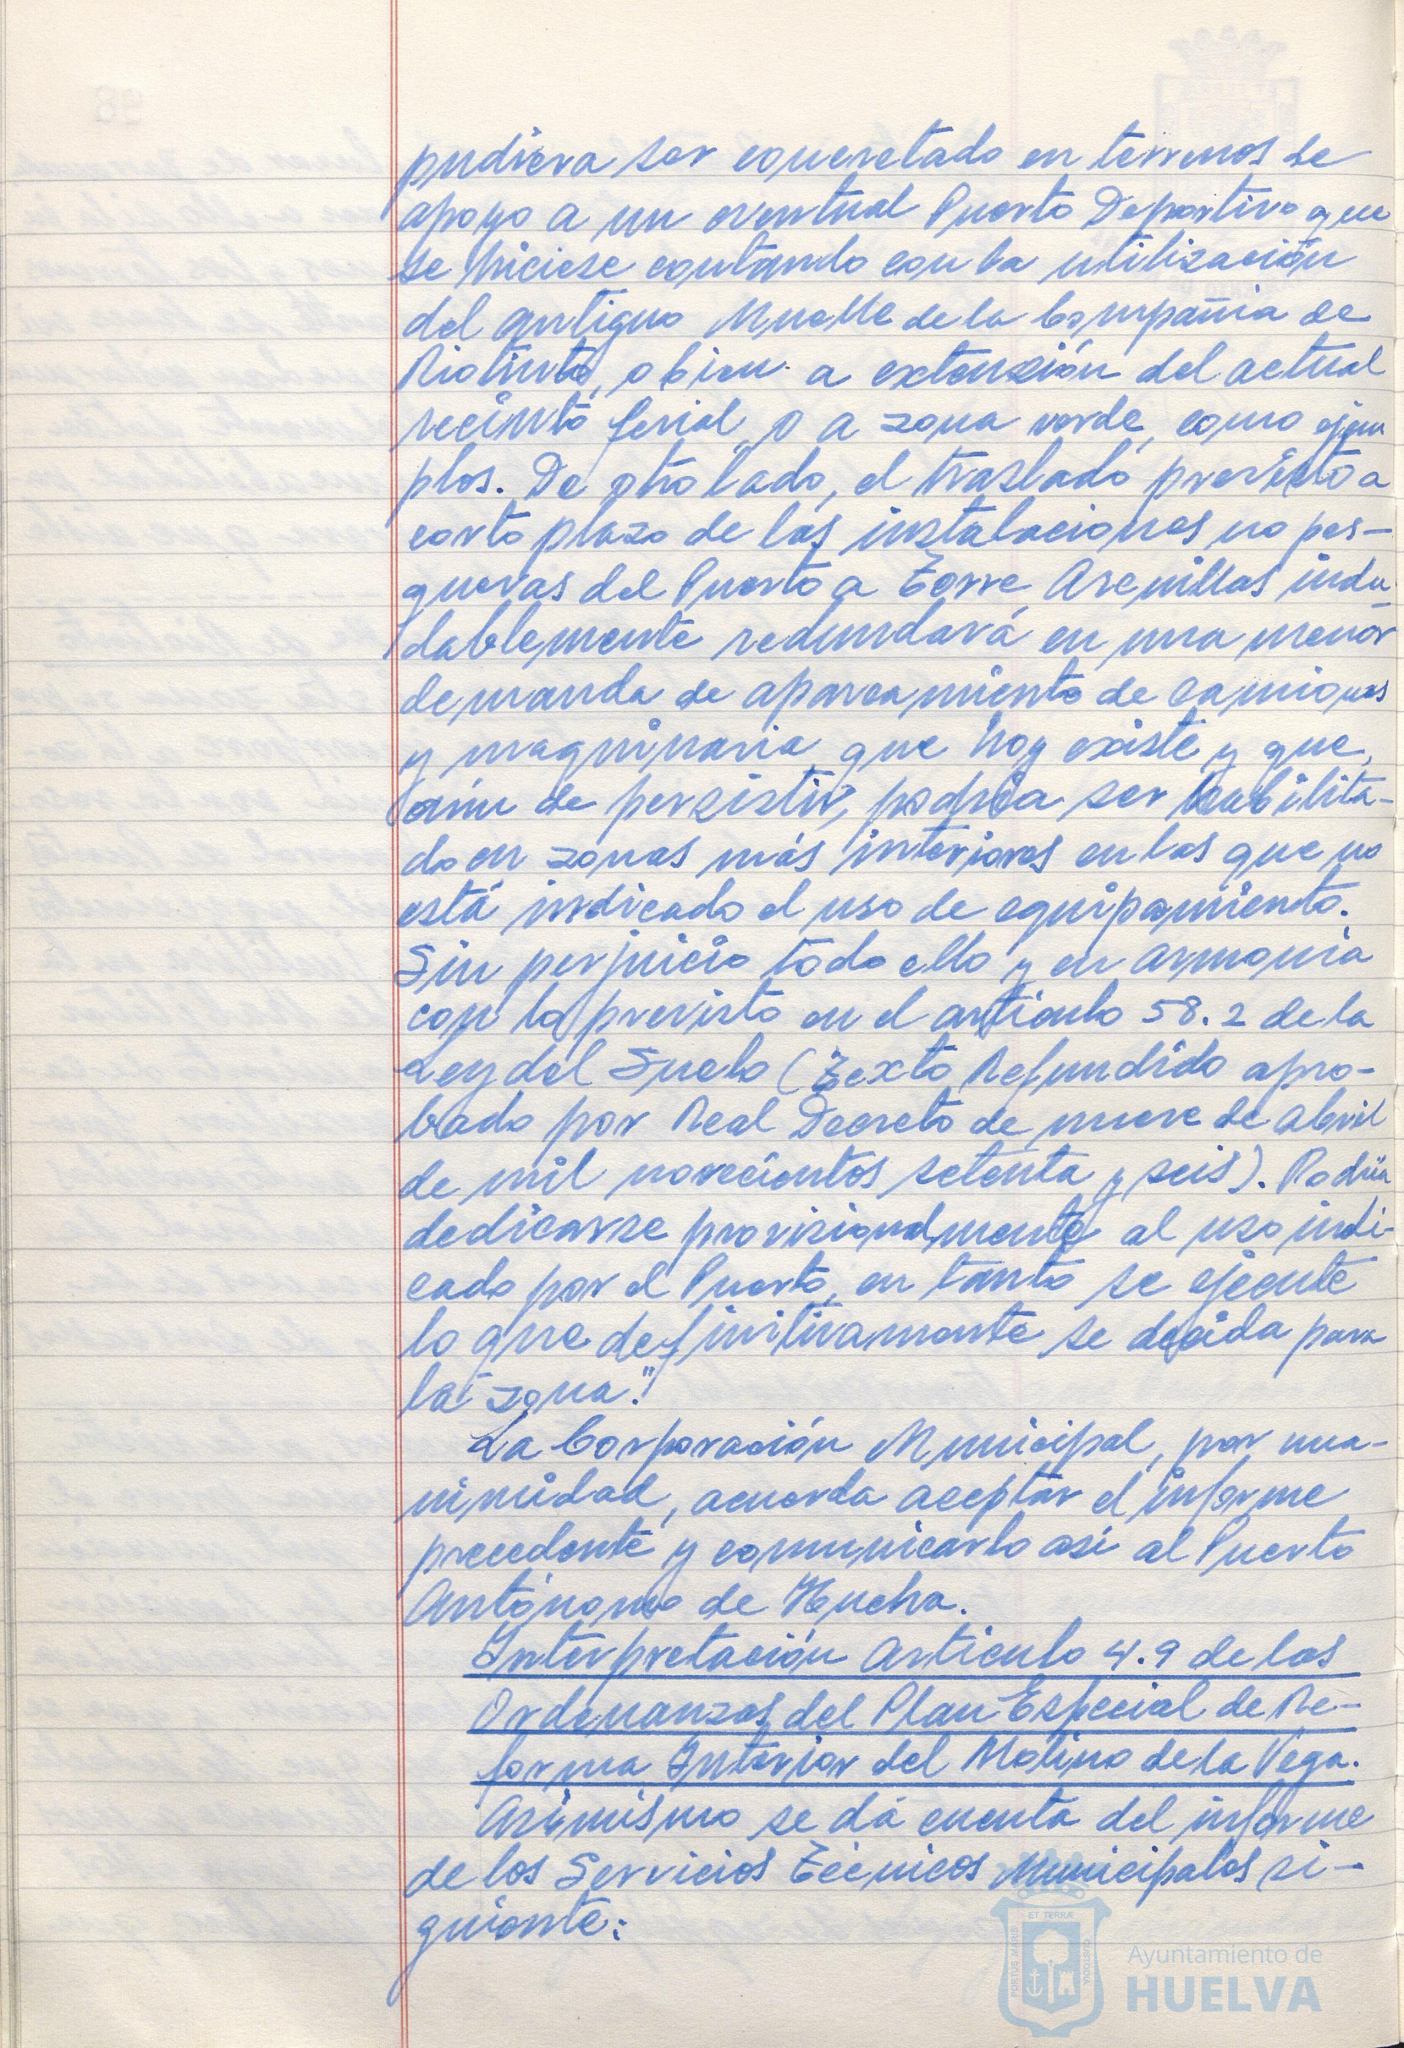 pudiera ser concretado en terrenos de
apoyo a un eventual Puerto Deportivo que
se hiciese contando con la utilización
del antiguo Muelle de la Compañia de
Riotinto, o bien a extensión del actual
recinto ferial o a zona verde, como ejem
plos. De otro lado, el traslado previsto a
corto plazo de las instalaciones no pes-
queras del Puerto a Torre Arenillas indu-
dablemente redundará en una menor
demanda de aparcamiento de camiones
y maquinaria que hoy existe y que,
aún de persistir, podria ser habilita-
do en zonas más interiores en las que no
está indicado el uso de equipamiento.
Sin perjuicio todo ello y en armonia
con lo previsto en el articulo 58.2 de la
Ley del Suelo (Texto Refundido apro-
bado por Real Decreto de nueve de abril
de mil novecientos setenta y seis). Podria
dedicarse provisionalmente al uso indi-
cado por el Puerto, en tanto se ejecute
lo que definitivamente se decida para
la zona."
La Corporación Municipal, por una-
nimidad, acuerda aceptar el informe
precedente y comunicarlo asi al Puerto
Autónomo de Huelva.
Interpretación Articulo 4.9 de las
Ordenanzas del Plan Especial de Re-
forma Interior del Molino de la Vega.
Asimismo se dá cuenta del informe
de los Servicios Técnicos Municipales si-
guiente:
PORTUS MARIS
ET TERRÆ
CUSTODIA
Ayuntamiento de
HUELVA